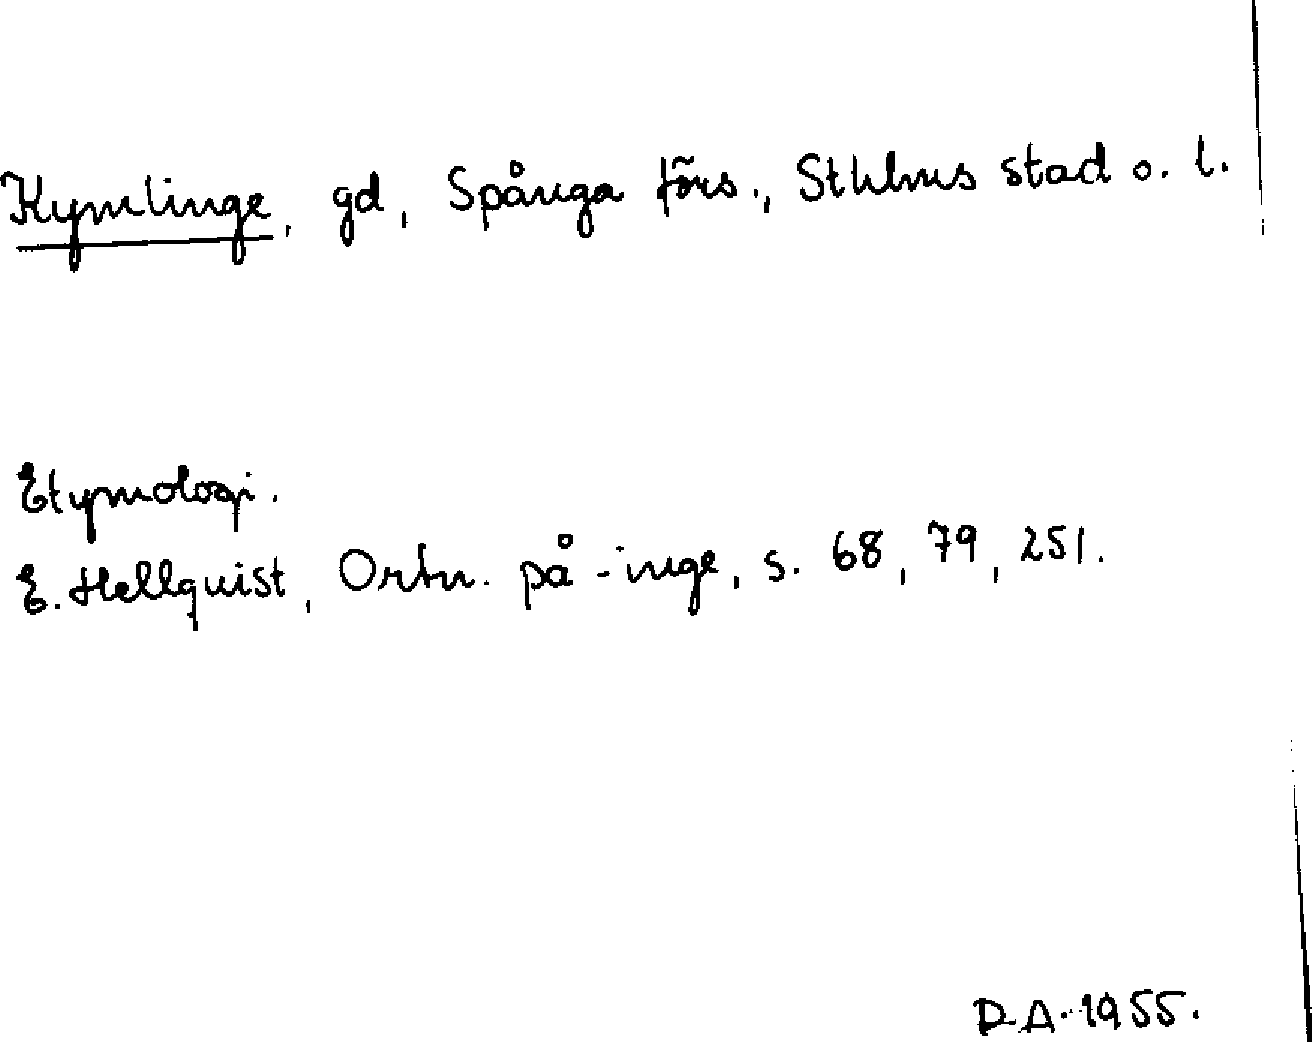 Kymlinge, gd, Spånga förs., Sthlms stad o. l.
Etymologi.
E. Hellquist, Ortn. på -inge, s. 68, 79, 251.
D.A. 1955.